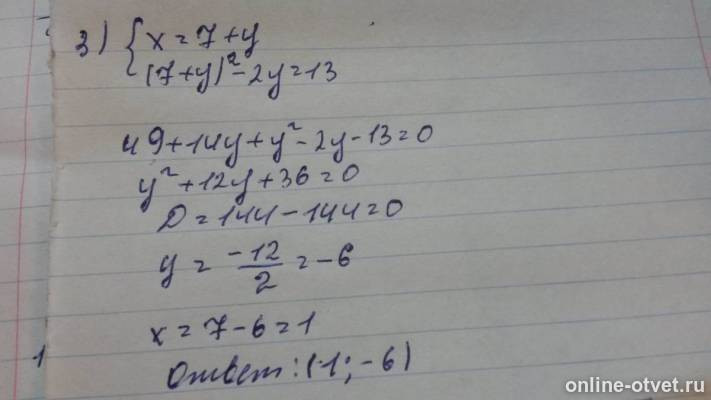 3) { x = 7 + y
(7+y)² - 2y = 13
49 + 14y + y² - 2y - 13 = 0
y² + 12y + 36 = 0
D = 144 - 144 = 0
y = -12/2 = -6
x = 7 - 6 = 1
Ответ: (-1; -6)
online-otvet.ru